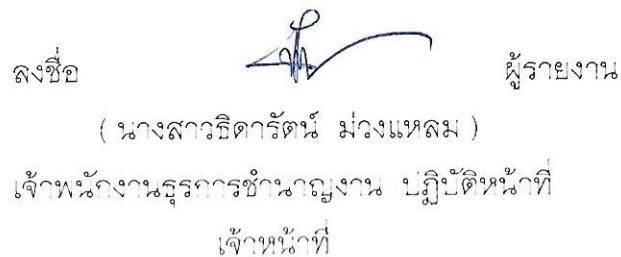 ลงชื่อ ผู้รายงาน
( นางสาวธิดารัตน์ ม่วงแหลม )
เจ้าพนักงานธุรการชำนาญงาน ปฏิบัติหน้าที่
เจ้าหน้าที่